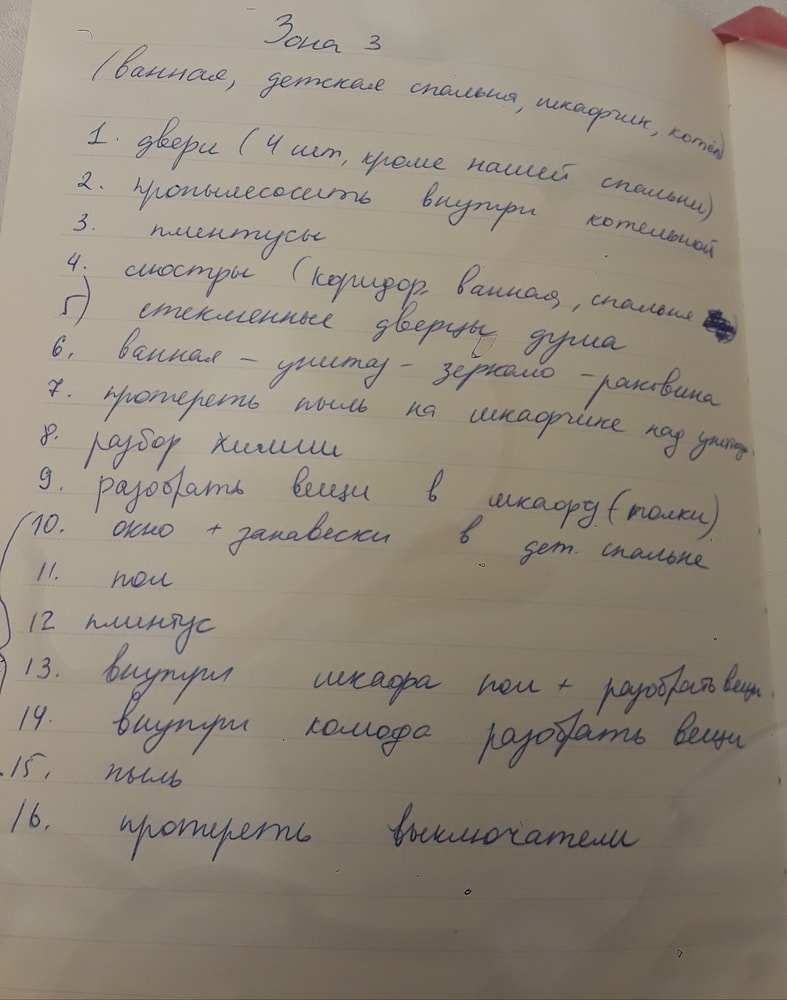 Зона 3
(ванная, детская спальня, шкафчик, котёл)
1. двери (4 шт, кроме нашей спальни)
2. пропылесосить внутри котельной
3. плинтусы
4. люстры (коридор, ванная, спальня)
5) стеклянные дверцы душа
6. ванная – унитаз – зеркало – раковина
7. протереть пыль на шкафчике над унитаз.
8. разбор химии
9. разобрать вещи в шкафу (полки)
10. окно + занавески в дет. спальне
11. пол
12 плинтус
13. внутри шкафа пол + разобрать вещи.
14. внутри комода разобрать вещи
15. пыль
16. протереть выключатели